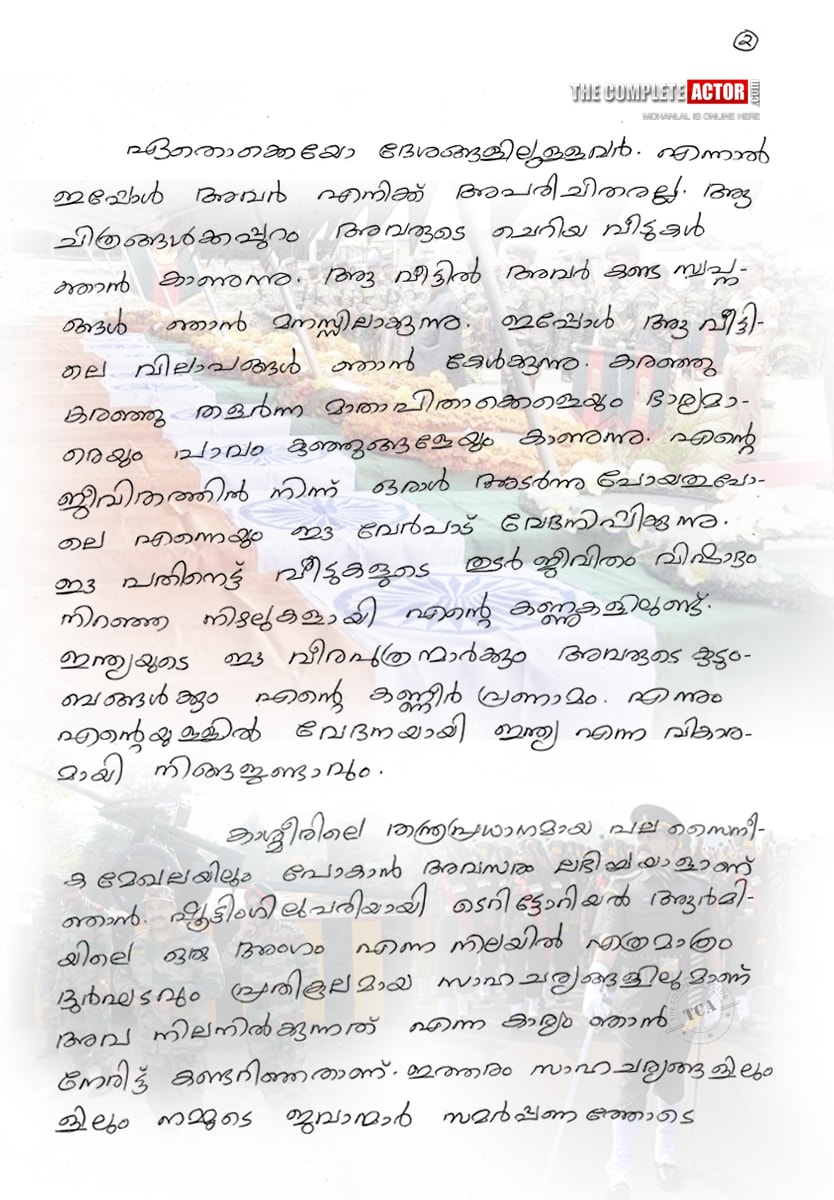 ൨
THE COMPLETE ACTOR
.COM
MOHANLAL IS ONLINE HERE
ഏതൊക്കെയോ ദേശങ്ങളിലുള്ളവർ. എന്നാൽ
ഇപ്പോൾ അവർ എനിക്ക് അപരിചിതരല്ല. ആ
ചിത്രങ്ങൾക്കപ്പുറം അവരുടെ ചെറിയ വീടുകൾ
ഞാൻ കാണുന്നു. ആ വീട്ടിൽ അവർ കണ്ട സ്വപ്ന-
ങ്ങൾ ഞാൻ മനസ്സിലാക്കുന്നു. ഇപ്പോൾ ആ വീട്ടി-
ലെ വിലാപങ്ങൾ ഞാൻ കേൾക്കുന്നു. കരഞ്ഞു
കരഞ്ഞു തളർന്ന മാതാപിതാക്കളെയും ഭാര്യമാ-
രെയും പാവം കുഞ്ഞുങ്ങളേയും കാണുന്നു. എന്റെ
ജീവിതത്തിൽ നിന്ന് ഒരാൾ അടർന്നു പോയതുപോ-
ലെ എന്നെയും ഈ വേർപാട് വേദനിപ്പിക്കുന്നു.
ഈ പതിനെട്ട് വീടുകളുടെ തുടർ ജീവിതം വിഷാദം
നിറഞ്ഞ നിഴലുകളായി എന്റെ കണ്ണുകളിലുണ്ട്.
ഇന്ത്യയുടെ ഈ വീരപുത്രന്മാർക്കും അവരുടെ കുടും-
ബങ്ങൾക്കും എന്റെ കണ്ണീർ പ്രണാമം. എന്നും
എന്റെയുള്ളിൽ വേദനയായി ഇന്ത്യ എന്ന വികാര-
മായി നിങ്ങളുണ്ടാവും.
കാശ്മീരിലെ തന്ത്രപ്രധാനമായ പല സൈനീ-
ക മേഖലയിലും പോകാൻ അവസരം ലഭിച്ചയാളാണ്
ഞാൻ. ഷൂട്ടിംഗിലുപരിയായി ടെറിട്ടോറിയൽ ആർമി-
യിലെ ഒരു അംഗം എന്ന നിലയിൽ എത്രമാത്രം
ദുർഘടവും പ്രതികൂലമായ സാഹചര്യങ്ങളിലുമാണ്
അവ നിലനിൽക്കുന്നത് എന്ന കാര്യം ഞാൻ
നേരിട്ട് കണ്ടറിഞ്ഞതാണ്. ഇത്തരം സാഹചര്യങ്ങളിലും
ളിലും നമ്മുടെ ജവാന്മാർ സമർപ്പണത്തോടെ
TCA